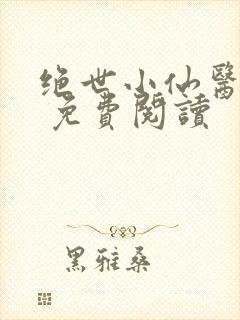 绝世小仙醫
免費閱讀
黑雅桑